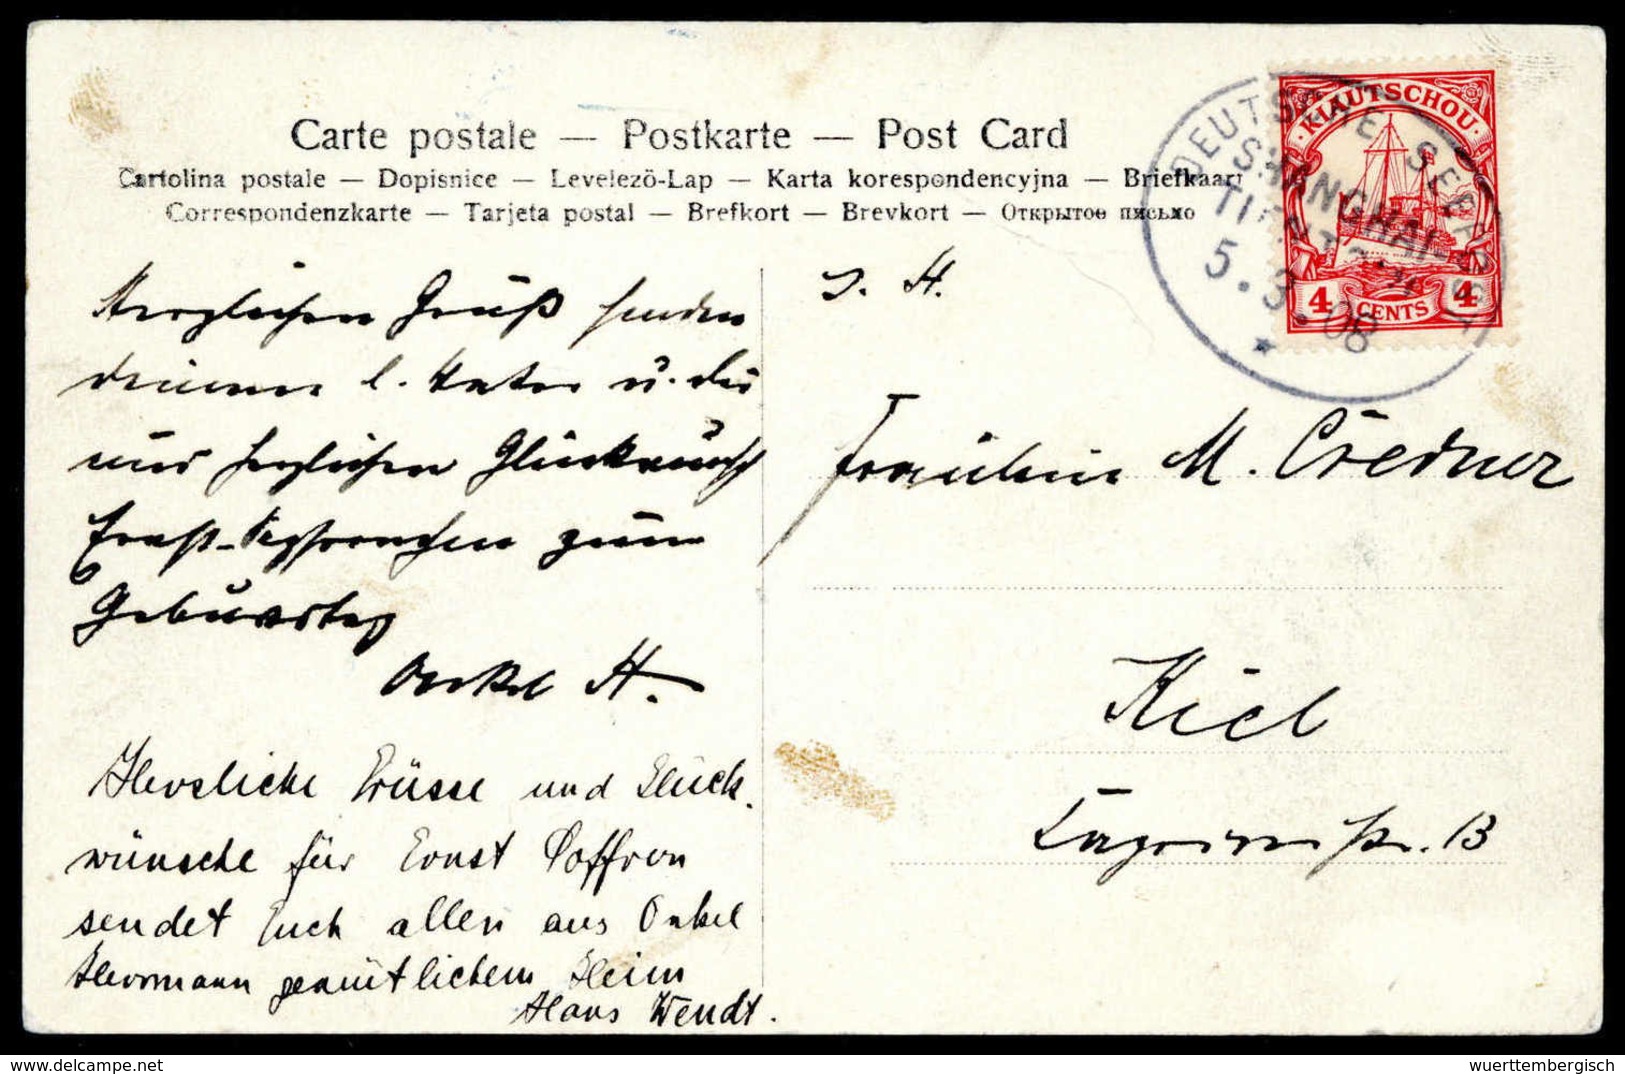 Carte postale — Postkarte — Post Card
Cartolina postale — Dopisnice — Levelezö-Lap — Karta korespondencyjna — Briefkaart
Correspondenzkarte — Tarjeta postal — Brefkort — Brevkort — Открытое письмо
KIAUTSCHOU
4 CENTS 4
DEUTSCHE SEEPOST
SHANGHAI-
TIENTSIN
5.3.08
Herzlichen Gruß senden
l. Vater u. die
und herzlichen Glückwunsch
zum
Geburtstag
Onkel H.
Herzliche Grüsse und Glück
wünsche für Ernst
sendet Euch allen aus Onkel
Hermann gemütlichem Heim
Hans Wendt.
Fräulein M. Credner
Kiel
wuerttembergisch